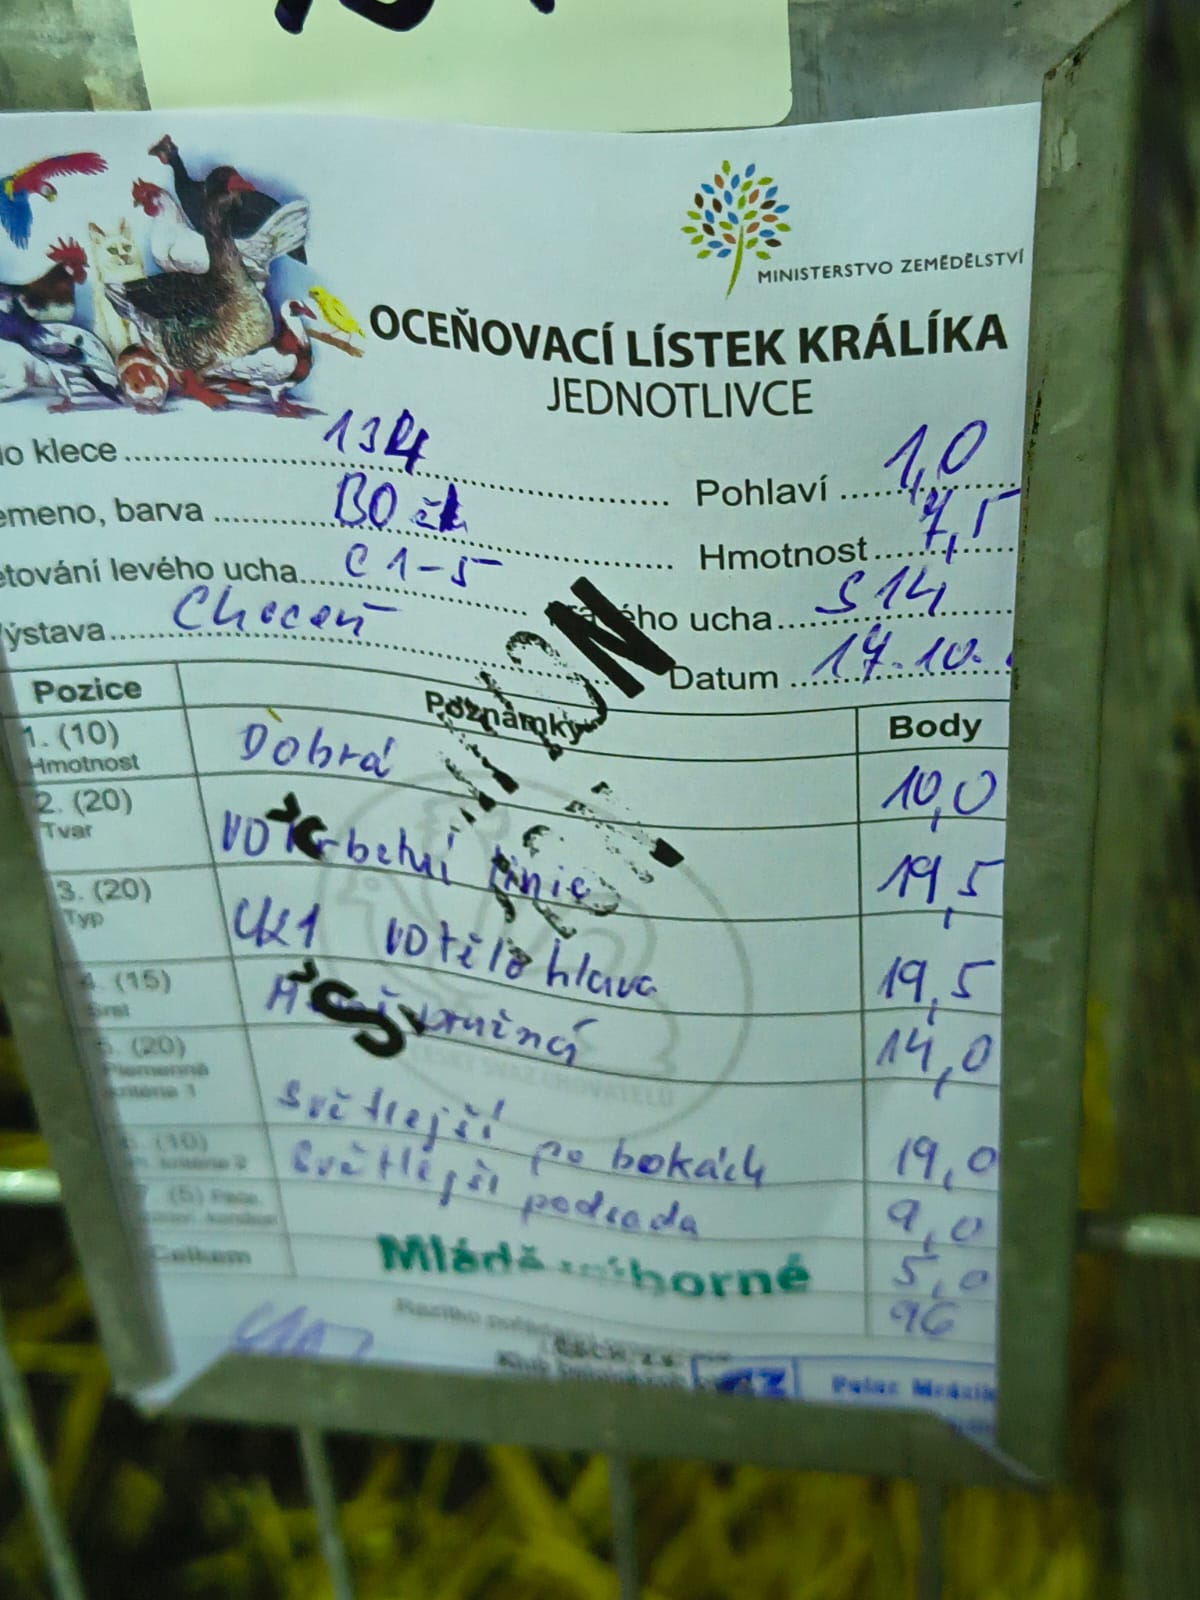 MINISTERSTVO ZEMĚDĚLSTVÍ
OCEŇOVACÍ LÍSTEK KRÁLÍKA
JEDNOTLIVCE
lo klece 134 Pohlaví 1,0
emeno, barva BO čh Hmotnost 7,5
etování levého ucha C 1-5 ého ucha S 14
ýstava Choceň Datum 17.10.
Pozice Poznámky Body
1. (10) Hmotnost Dobrá 10,0
2. (20) Tvar VO hřbetní linie 19,5
3. (20) Typ UK1 VO tělo hlava 19,5
4. (15) Srst pružná 14,0
5. (20) Plemenná kritéria 1 Světlejší po bokách 19,0
6. (10) Světlejší podsada 9,0
7. (5) Péče 5,0
Celkem Mládě výborné 96
ŠAMPION
ČSCH
CZ